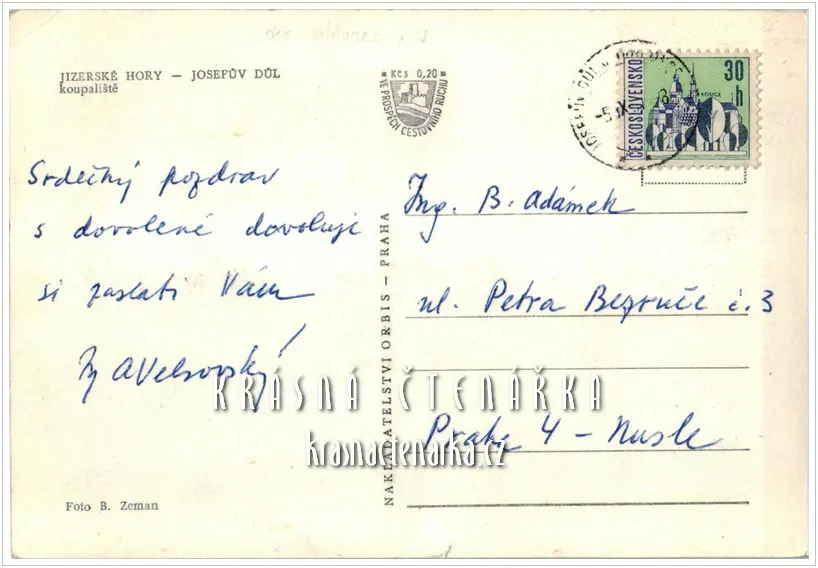 JIZERSKÉ HORY – JOSEFŮV DŮL
koupaliště
Kčs 0,20
VE PROSPĚCH CESTOVNÍHO RUCHU
ČESKOSLOVENSKO
30 h
KOŠICE
Srdečný pozdrav
s dovolené dovoluje
si zaslati Vám
Ing. B. Adámek
ul. Petra Bezruče č. 3
Praha 4 – Nusle
NAKLADATELSTVÍ ORBIS – PRAHA
KRÁSNÁ ČTENÁŘKA
krasnactenarka.cz
Foto B. Zeman